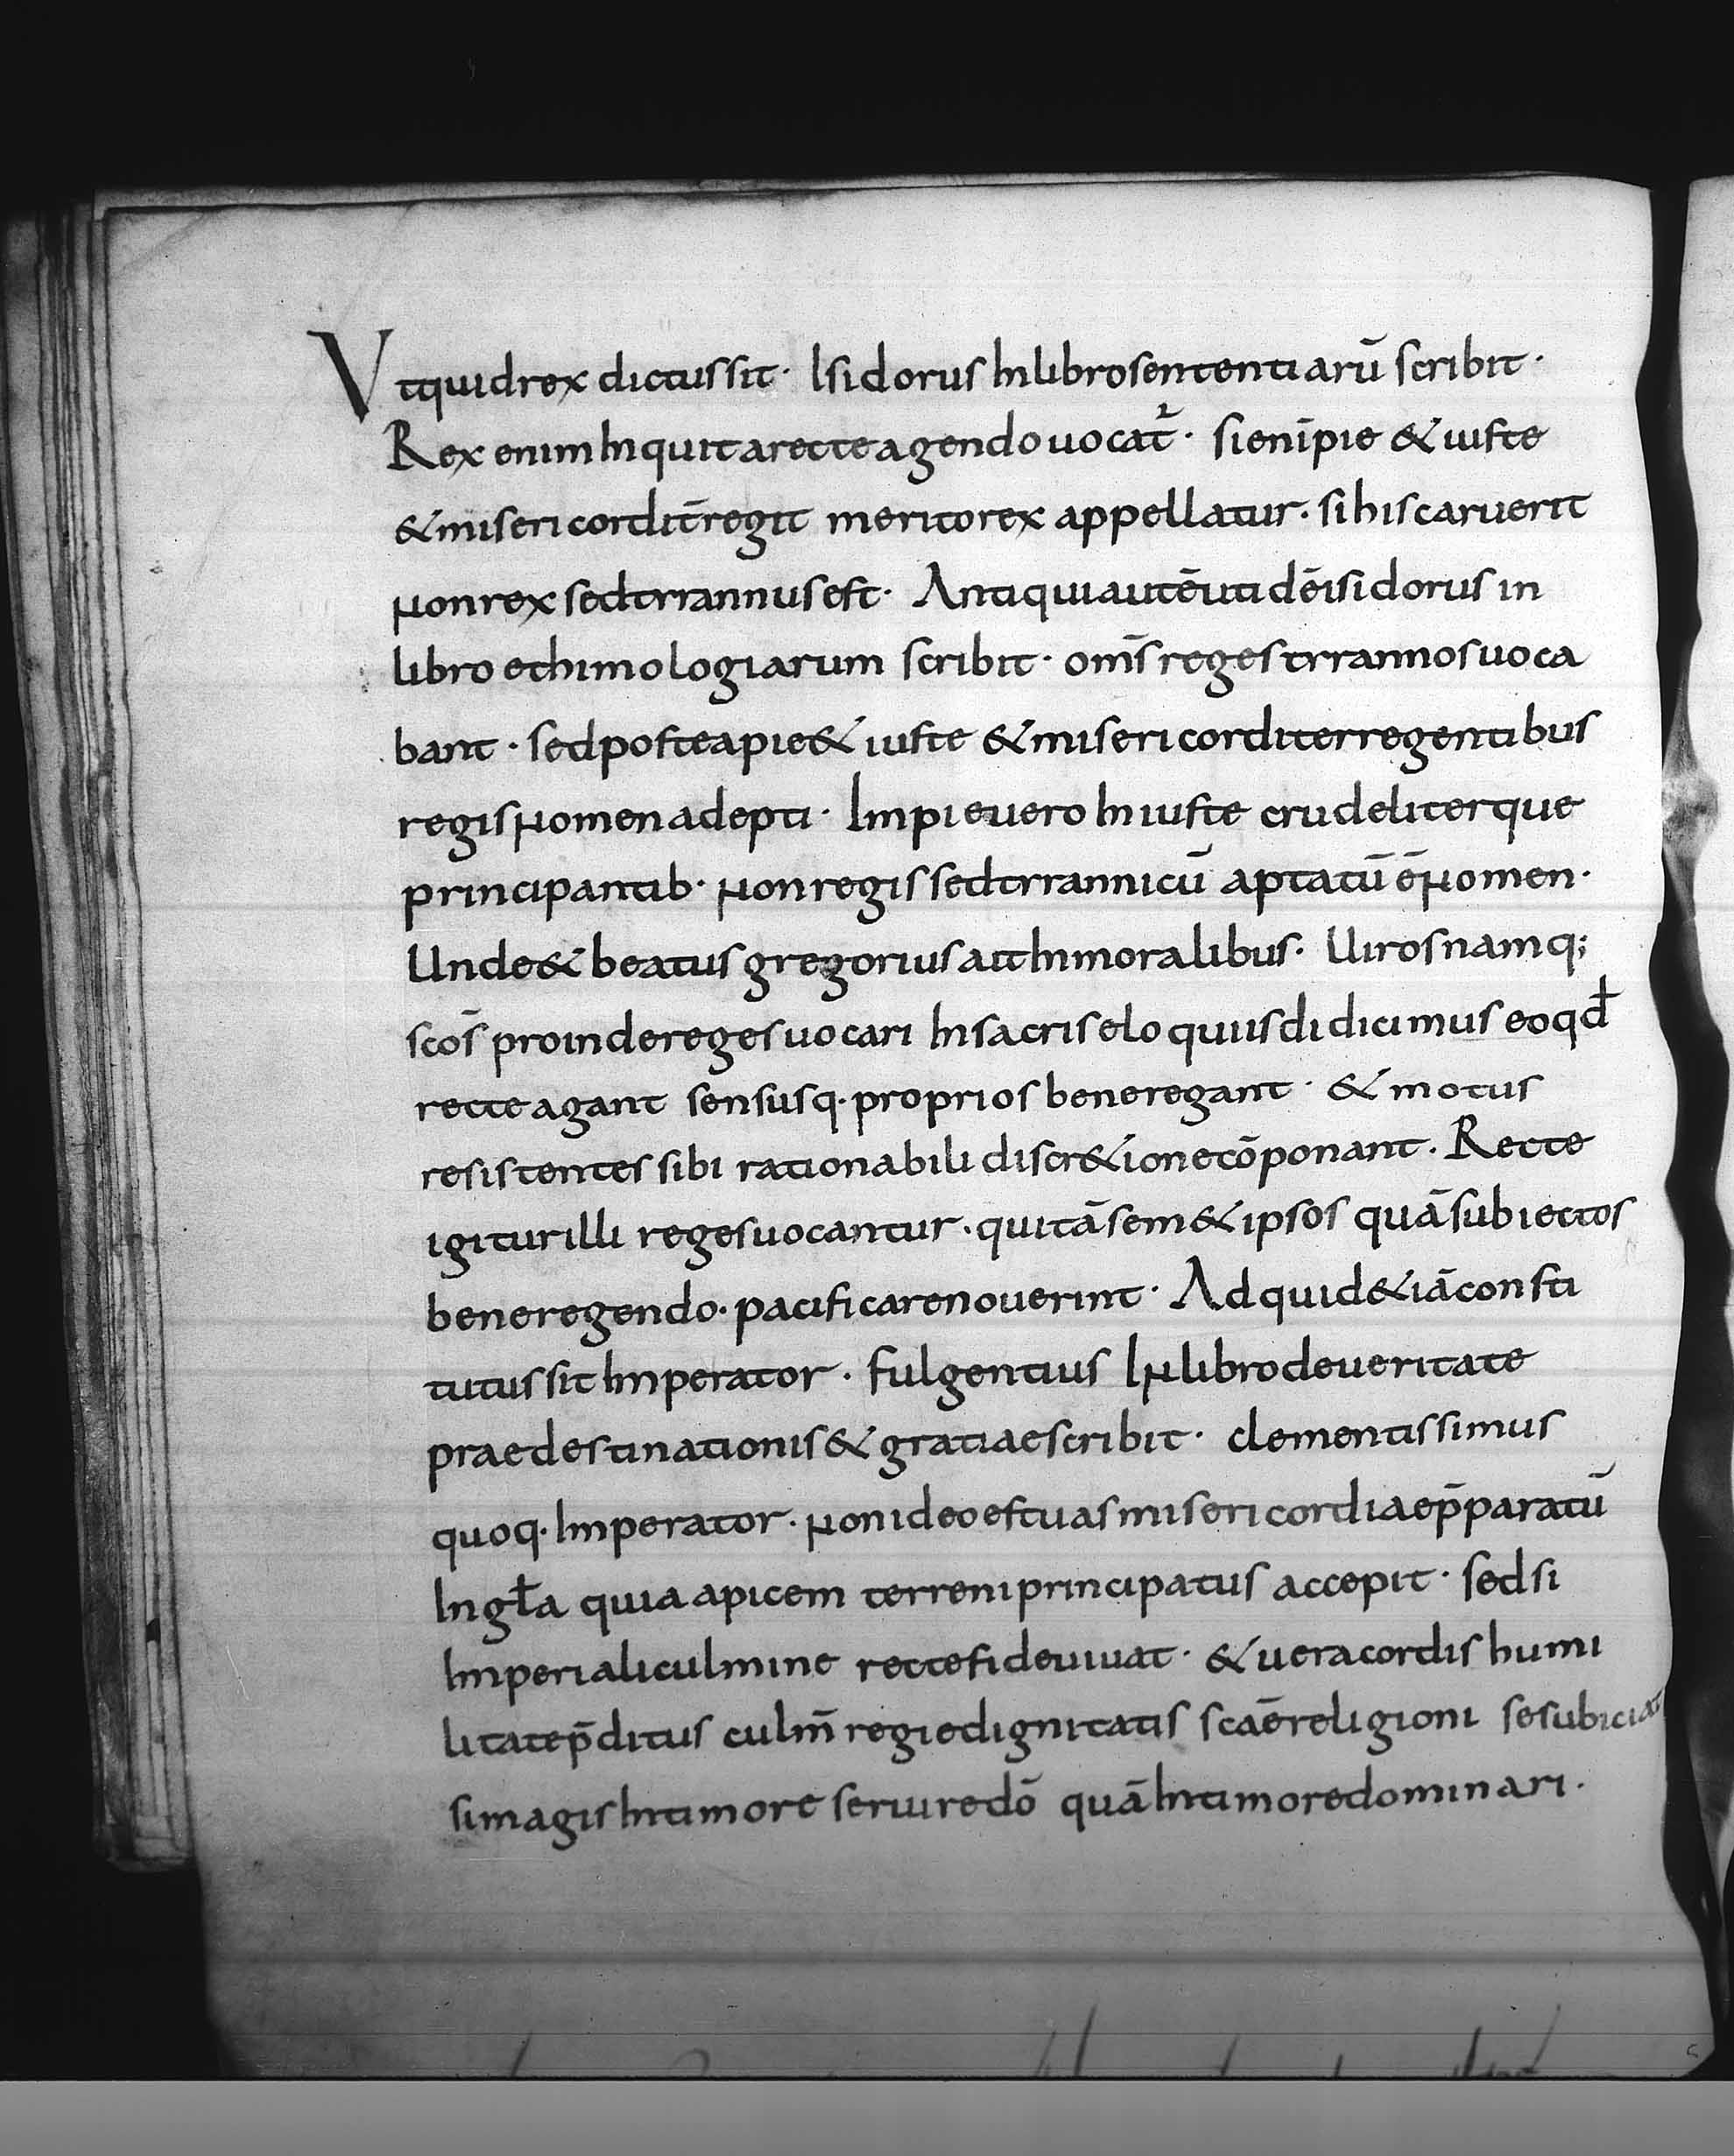 Vt quid rex dictus sit · Isidorus In libro sententiarū scribit ·
Rex enim Inquit a recte agendo uocat̄ · si eni̅ pie & iuste
& misericordit̄ regit merito rex appellatur · si his caruerit
Non rex sed tyrannus est · Antiqui autē uti dē isidorus in
libro ethimologiarum scribit · om̄s reges tyrannos uoca
bant · sed postea pie & iuste & misericorditer regentibus
regis Nomen adepti · Impie uero Iniuste crudeliterque
principantib · Non regis sed tyrannicū aptatū ē Nomen ·
Unde & beatus gregorius ait In moralibus · Uiros namq;
scōs proinde reges uocari In sacris eloquiis didicimus eo qđ
recte agant sensusq · proprios bene regant · & motus
resistentes sibi rationabili discr&ione cōponant · Recte
igitur illi reges uocantur · qui tā sem&ipsos quā subiectos
bene regendo · pacificare nouerint · Ad quid &iā consti
tutus sit Imperator · fulgentius IN libro de ueritate
praedestinationis & gratiae scribit · clementissimus
quoq · Imperator · Non ideo est uas misericordiae p̄paratū
In gła quia apicem terreni principatus accepit · sed si
Imperiali culmine recte fide uiuat · & uera cordis humi
litate p̄ditus culm̄ regie dignitatis scāe religioni se subiciat
si magis In timore seruire dō quā In timore dominari ·